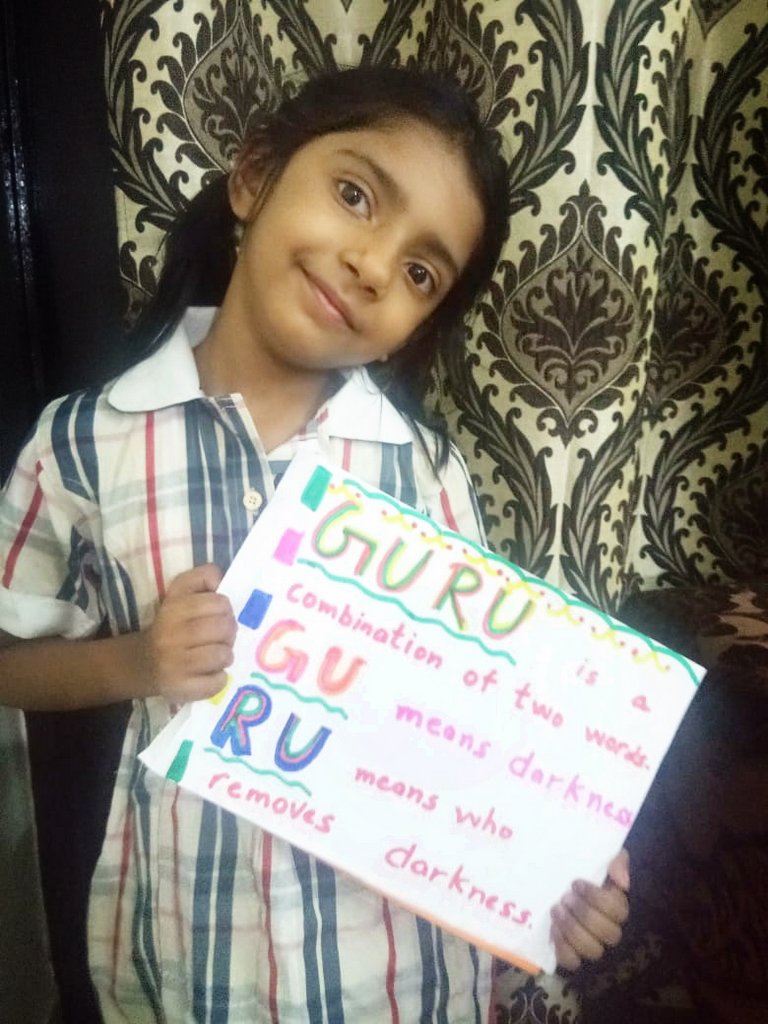 GURU is a
combination of two words.
GU means darkness
RU means who
removes darkness.